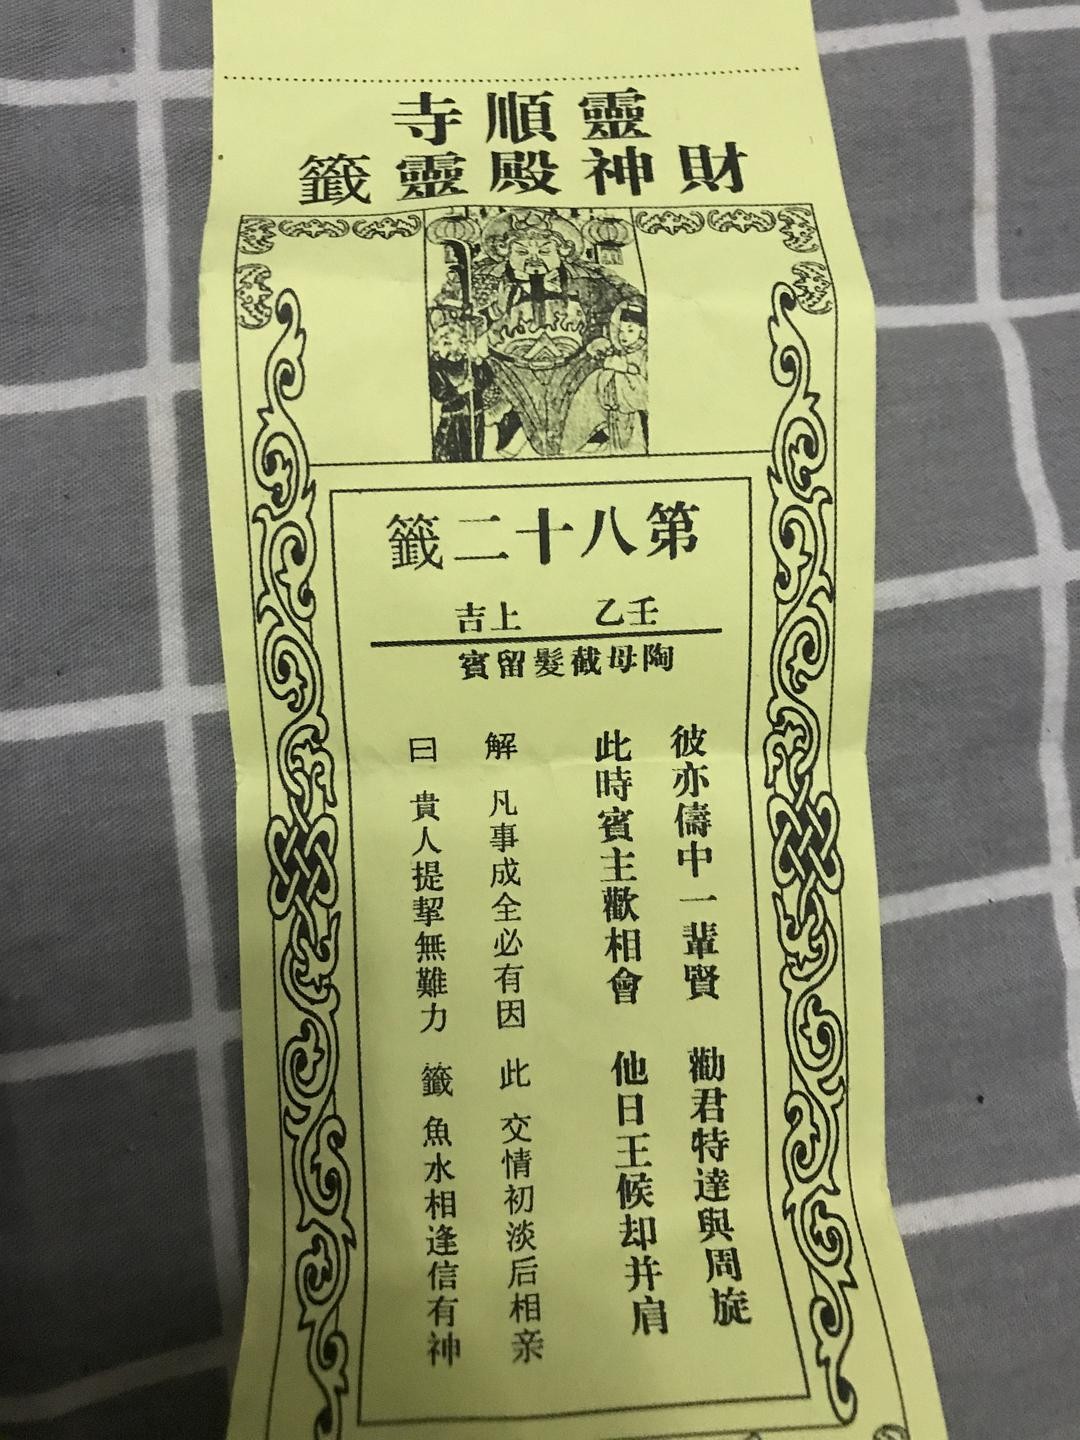 靈順寺
財神殿靈籤
第八十二籤
壬乙 上吉
陶母截髮留賓
彼亦儔中一輩賢 勸君特達與周旋
此時賓主歡相會 他日王候却并肩
解 凡事成全必有因 此 交情初淡后相亲
曰 貴人提挈無難力 籤 魚水相逢信有神